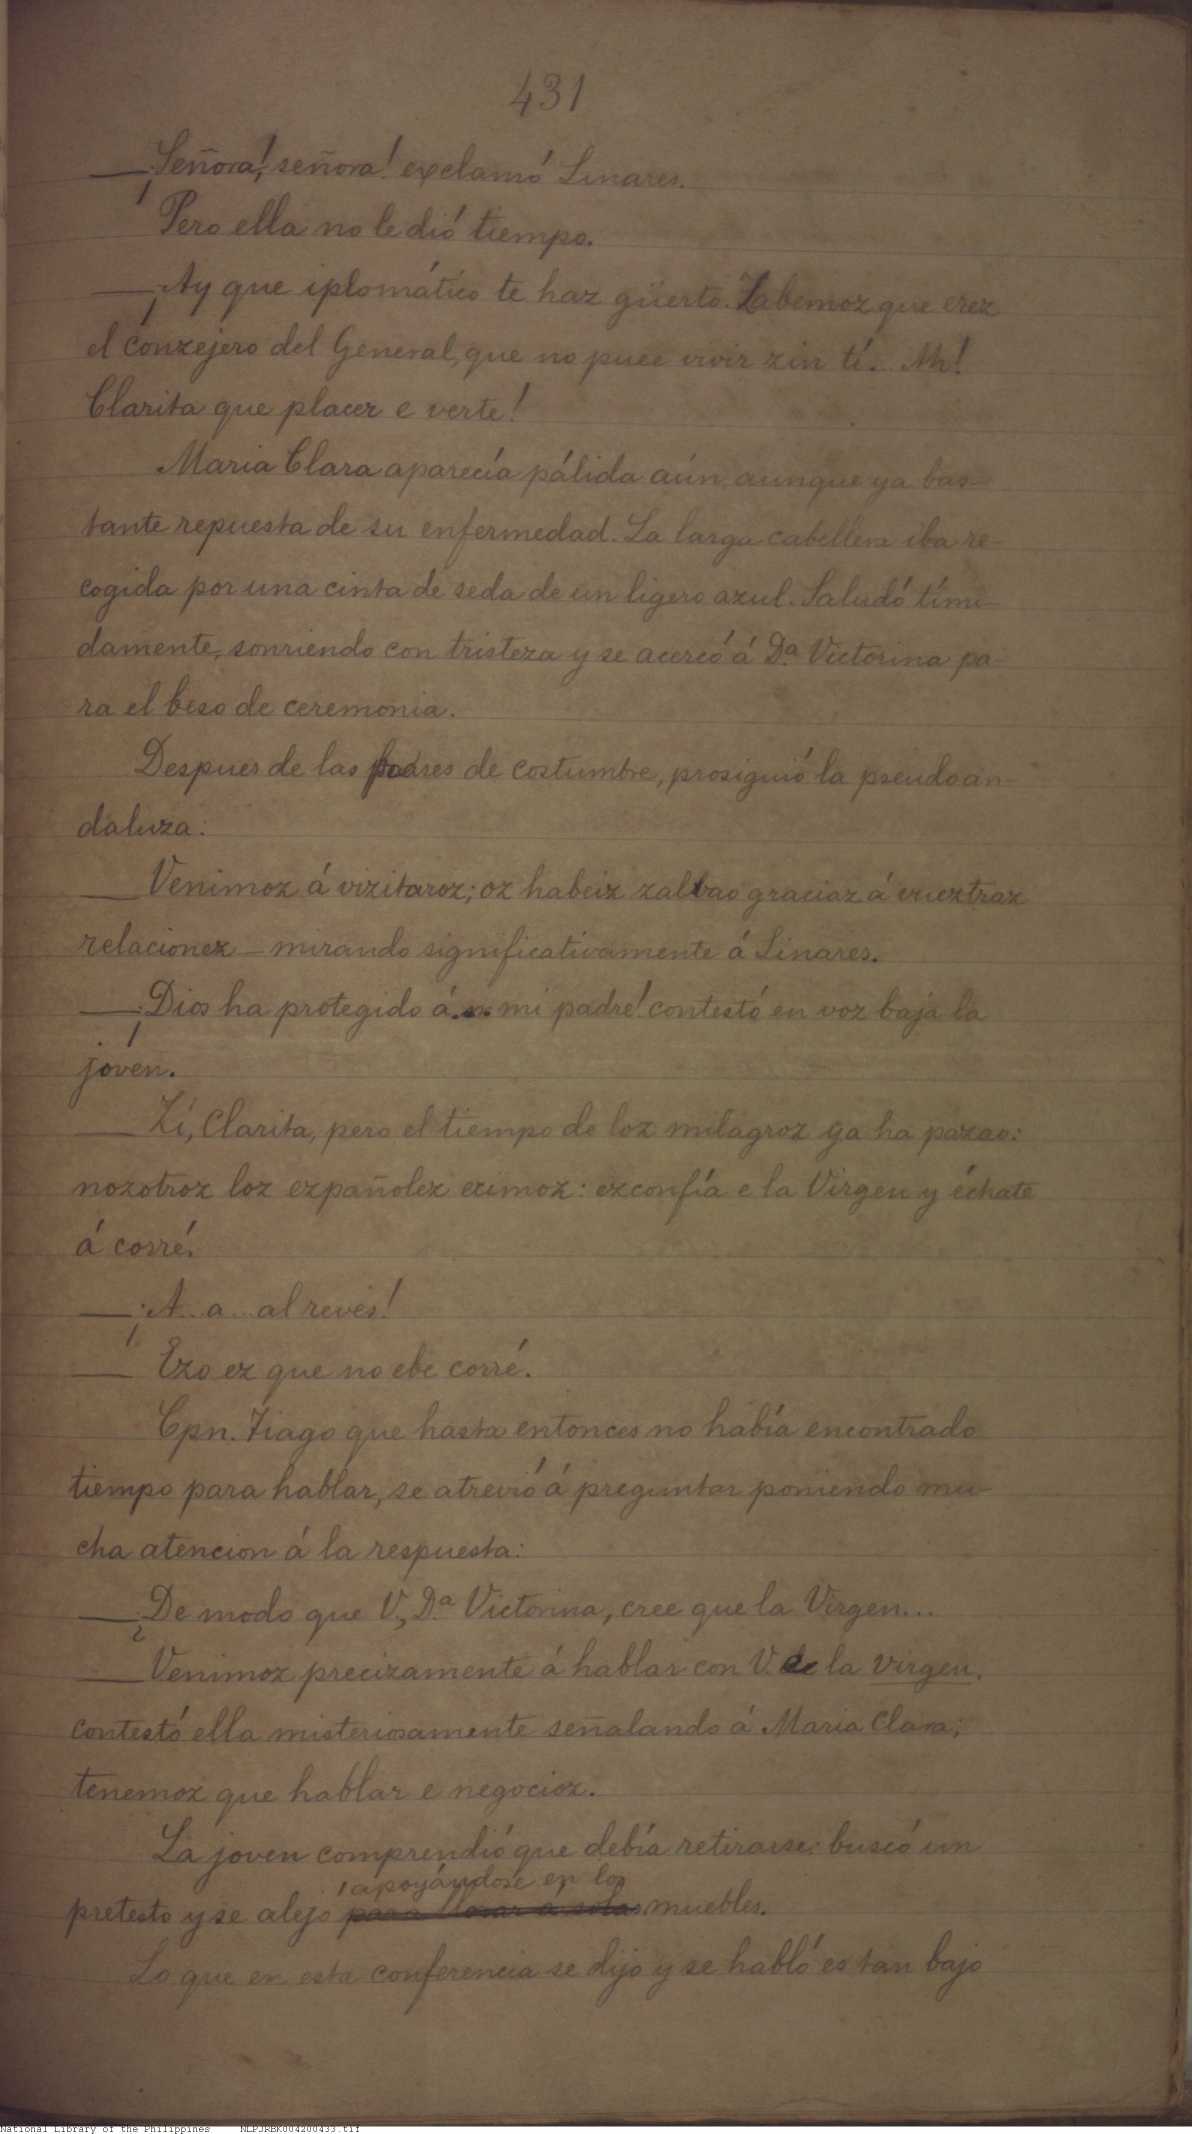 431
—¡Señora!, ¡señora! exclamó Linares.
Pero ella no le dió tiempo.
—¡Ay que iplomático te haz güerto. Zabemoz que erez
el conzejero del General, que no puee vivir zin tí.. Ah!
Clarita que placer e verte!
Maria Clara aparecía pálida aún, aunque ya bas-
tante repuesta de su enfermedad. La larga cabellera iba re-
cogida por una cinta de seda de un ligero azul. Saludó tími-
damente, sonriendo con tristeza y se acercó á D.ª Victorina pa-
ra el beso de ceremonia.
Despues de las frases de costumbre, prosiguió la pseudoan-
daluza:
—Venimoz á vizitaroz; oz habeiz zalbao graciaz á vueztraz
relacionez — mirando significativamente á Linares.
—¡Dios ha protegido á mi padre! contestó en voz baja la
jóven.
—Zí, Clarita, pero el tiempo de loz milagroz ya ha pazao:
nozotroz loz ezpañolez ezimoz: ezconfía e la Virgen y échate
á corré.
—¡A.. a... al revés!
— Ezo ez que no ebe corré.
Cpn. Tiago que hasta entonces no había encontrado
tiempo para hablar, se atrevió á preguntar poniendo mu-
cha atencion á la respuesta:
—¿De modo que V., D.ª Victorina, cree que la Virgen...
—Venimoz precizamente á hablar con V. de la virgen,
contestó ella misteriosamente señalando á Maria Clara;
tenemoz que hablar e negocioz.
La joven comprendió que debía retirarse: buscó un
apoyándose en los
pretesto y se alejo para llorar a solas muebles.
Lo que en esta conferencia se dijo y se habló es tan bajo
National Library of the Philippines NLPJRBK004200433.tif